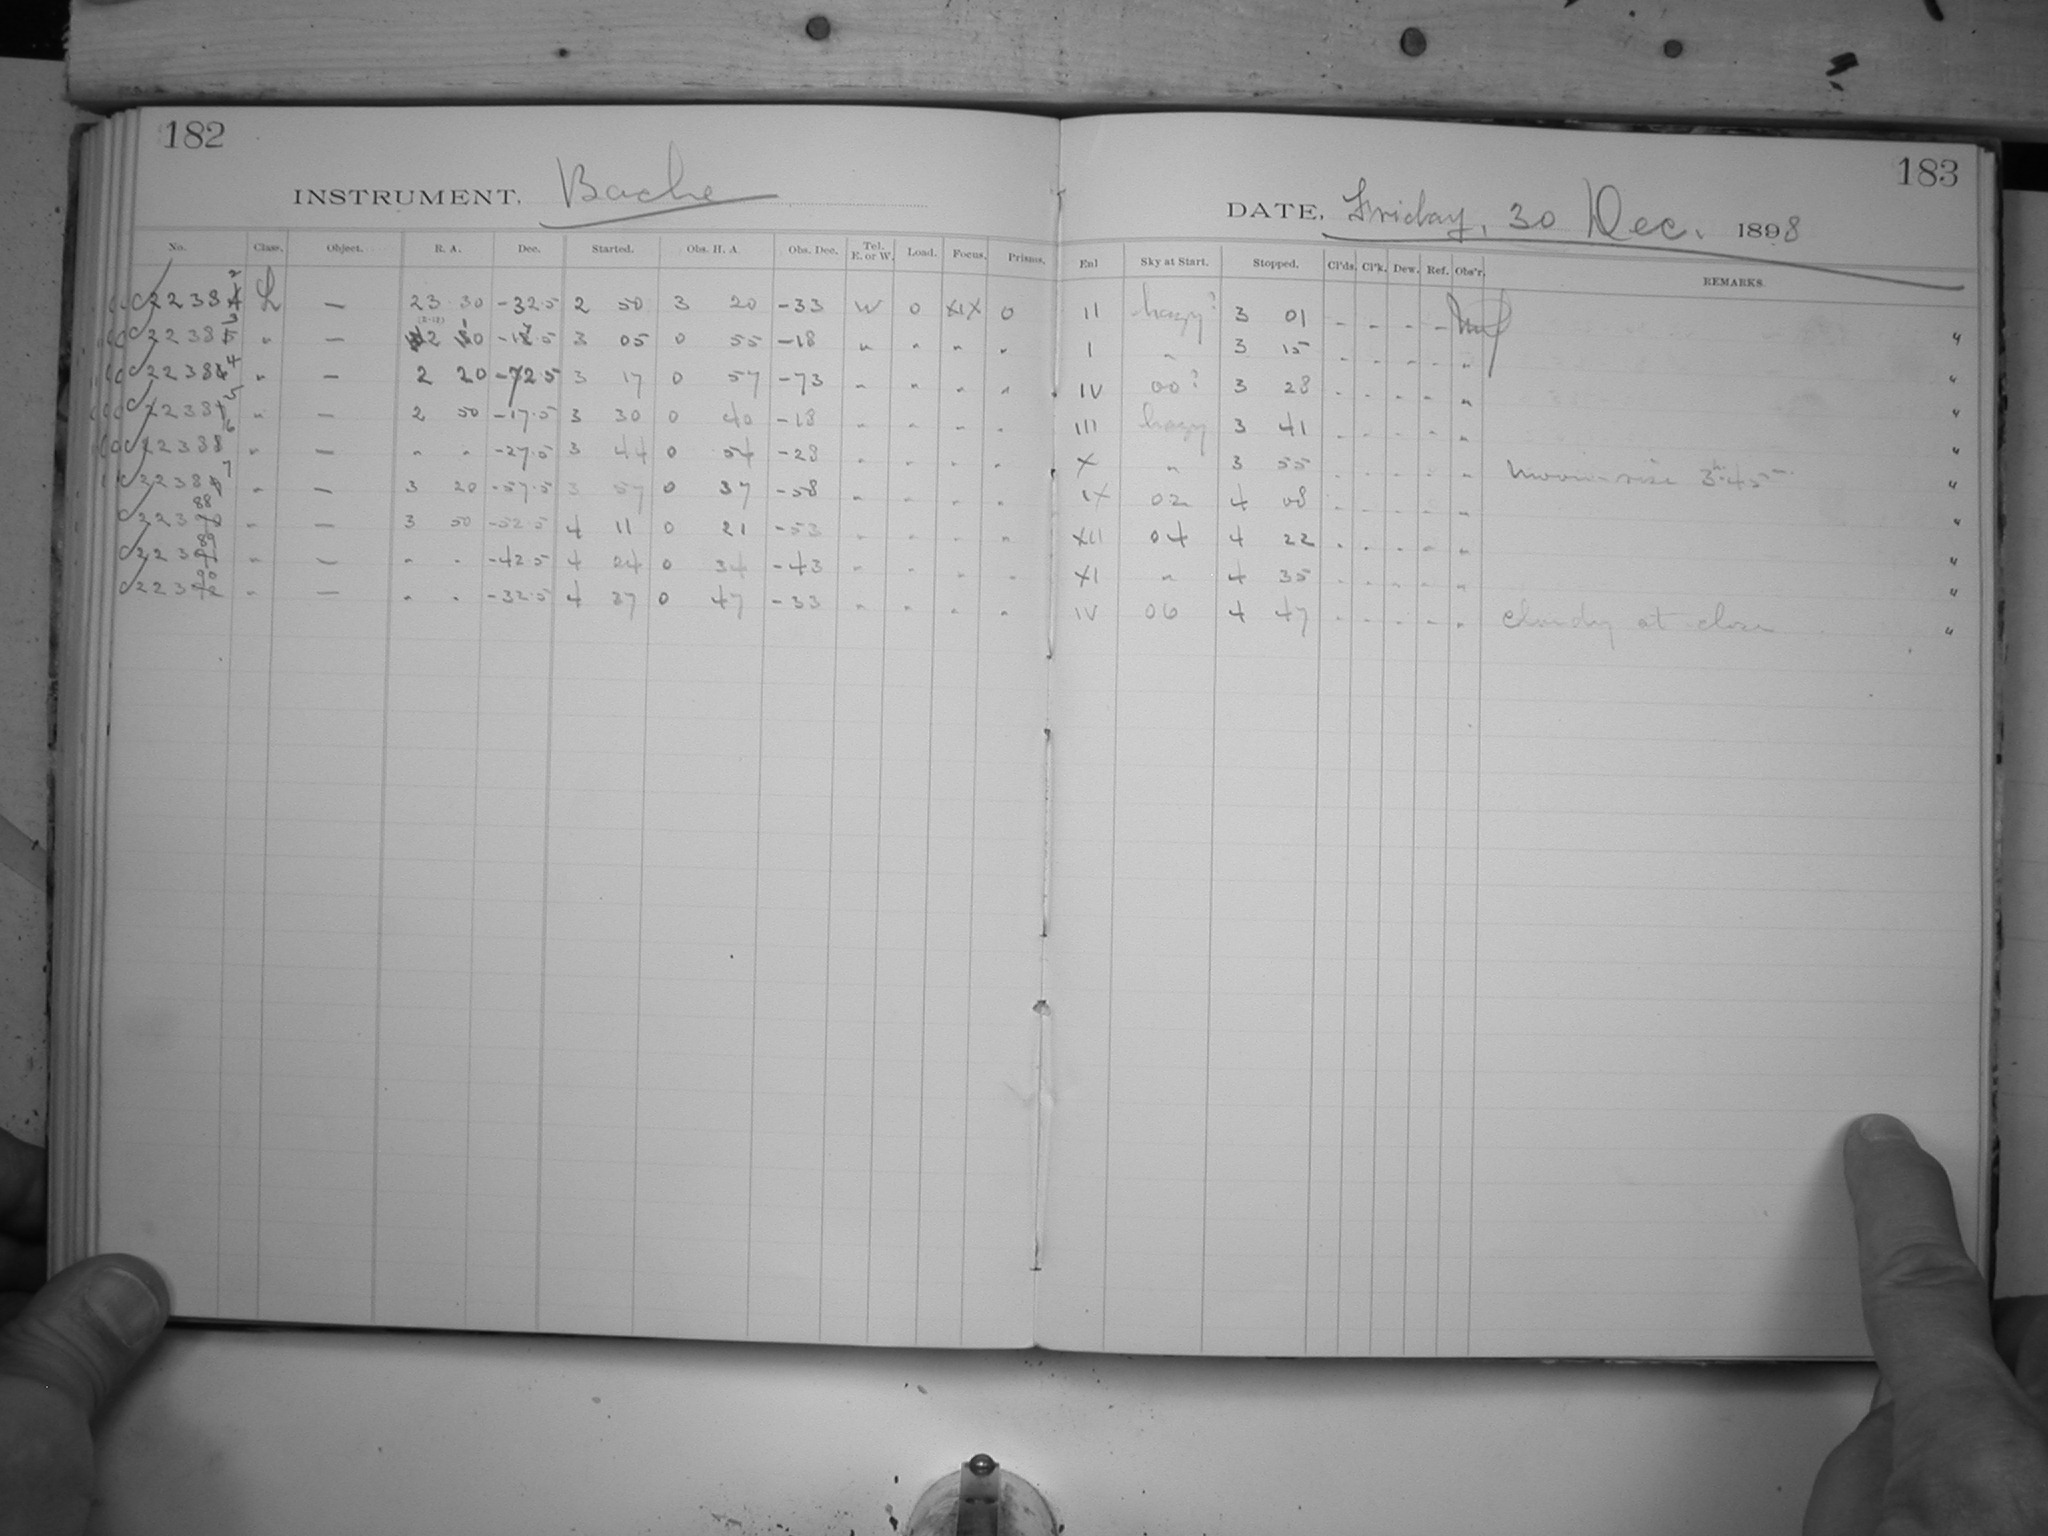 182
INSTRUMENT. Bache
No. Class. Object. R. A. Dec. Started. Obs. H. A. Obs. Dec. Tel. E. or W. Load. Focus. Prisms.
L — 23 30 -32.5 2 50 3 20 -33 W 0 XIX 0
" — 3 05 0 55 -18 " " " "
" — 2 20 -72.5 3 17 0 57 -73 " " " "
" — 2 50 -17.5 3 30 0 40 -18 " " " "
" — " " -27.5 3 44 0 54 -28 " " " "
" — 3 20 -57.5 3 57 0 37 -58 " " " "
" — 3 50 -52.5 4 11 0 21 -53 " " " "
" — " " -42.5 4 24 0 34 -43 " " " "
" — " " -32.5 4 37 0 47 -33 " " " "
183
DATE, Friday, 30 Dec. 1898
Enl Sky at Start. Stopped. Cl'ds. Cl'k. Dew. Ref. Obs'r. REMARKS.
II hazy? 3 01 - - - - "
I " 3 15 - - - - " "
IV 00? 3 28 - - - - " "
III hazy 3 41 - - - - " "
X " 3 55 - - - - " moon-rise 3h 45m "
IX 02 4 08 - - - - " "
XII 04 4 22 - - - - " "
XI " 4 35 - - - - " "
IV 06 4 47 - - - - " cloudy at close "